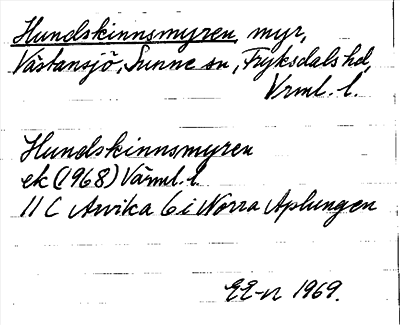 Hundskinnsmyren, myr,
Västansjö, Sunne sn, Fryksdals hd,
Vrml. l.
Hundskinnsmyren
ek (1968) Värml. l.
11 C Arvika 6 i Norra Aplungen
EE-n 1969.